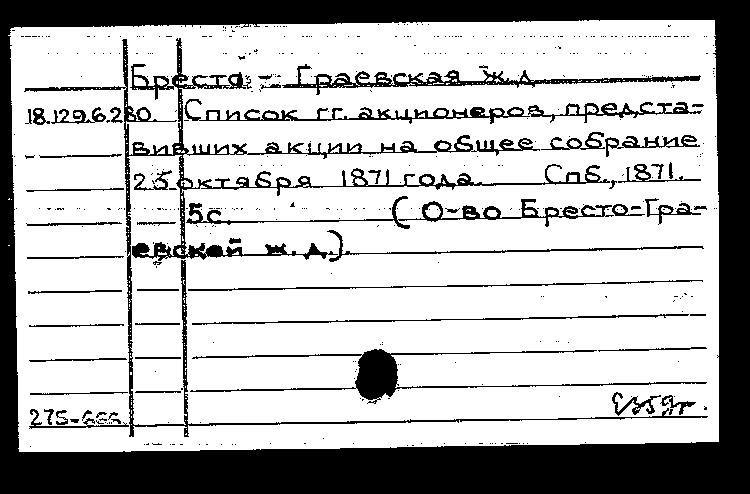 Бресто - Граевская ж.д
18.129.6.280. Список гг. акционеров, предста-
вивших акции на общее собрание
25 октября 1871 года. Спб., 1871.
5с. (О-во Бресто-Гра-
евской ж. д.).
275-666